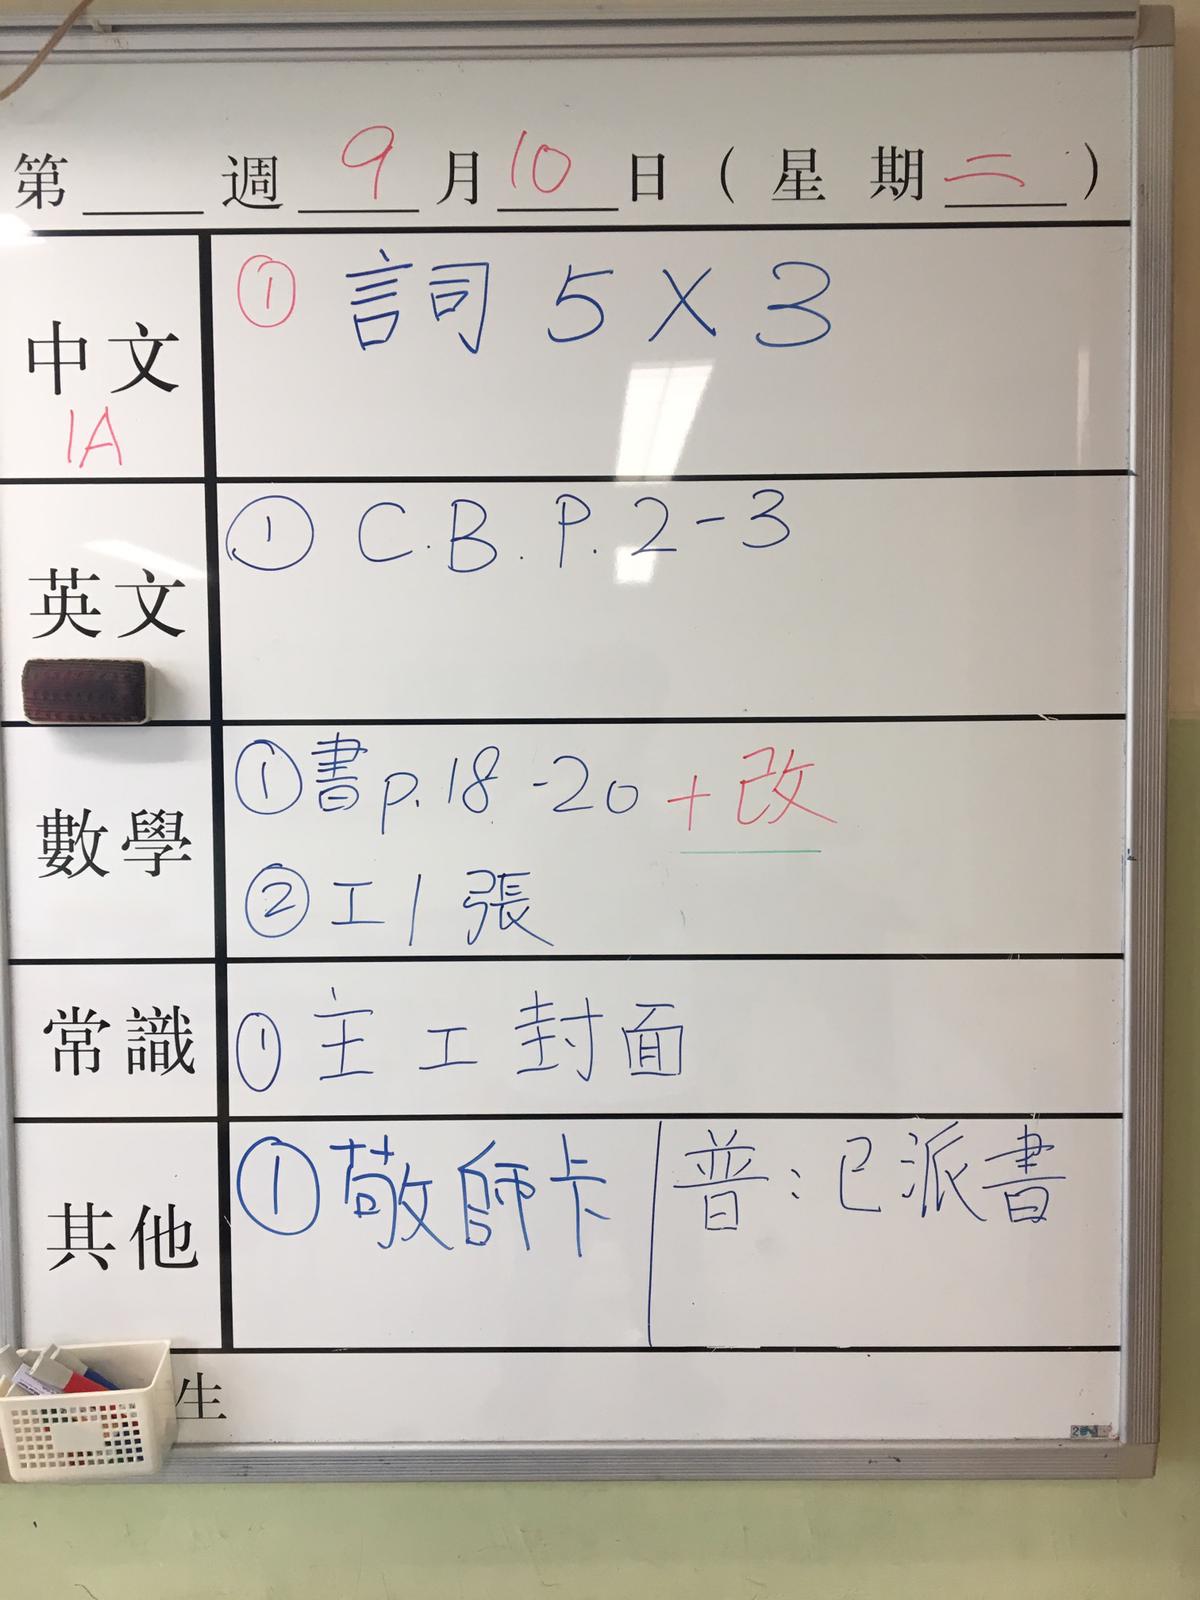 第 週 9 月 10 日 ( 星 期 二 )
中文
1A
① 詞 5 X 3
英文
① C.B. P. 2-3
數學
① 書 p. 18 -20 + 改
② 工 1 張
常識
① 主 工 封 面
其他
① 敬師卡 | 普 : 已派書
生